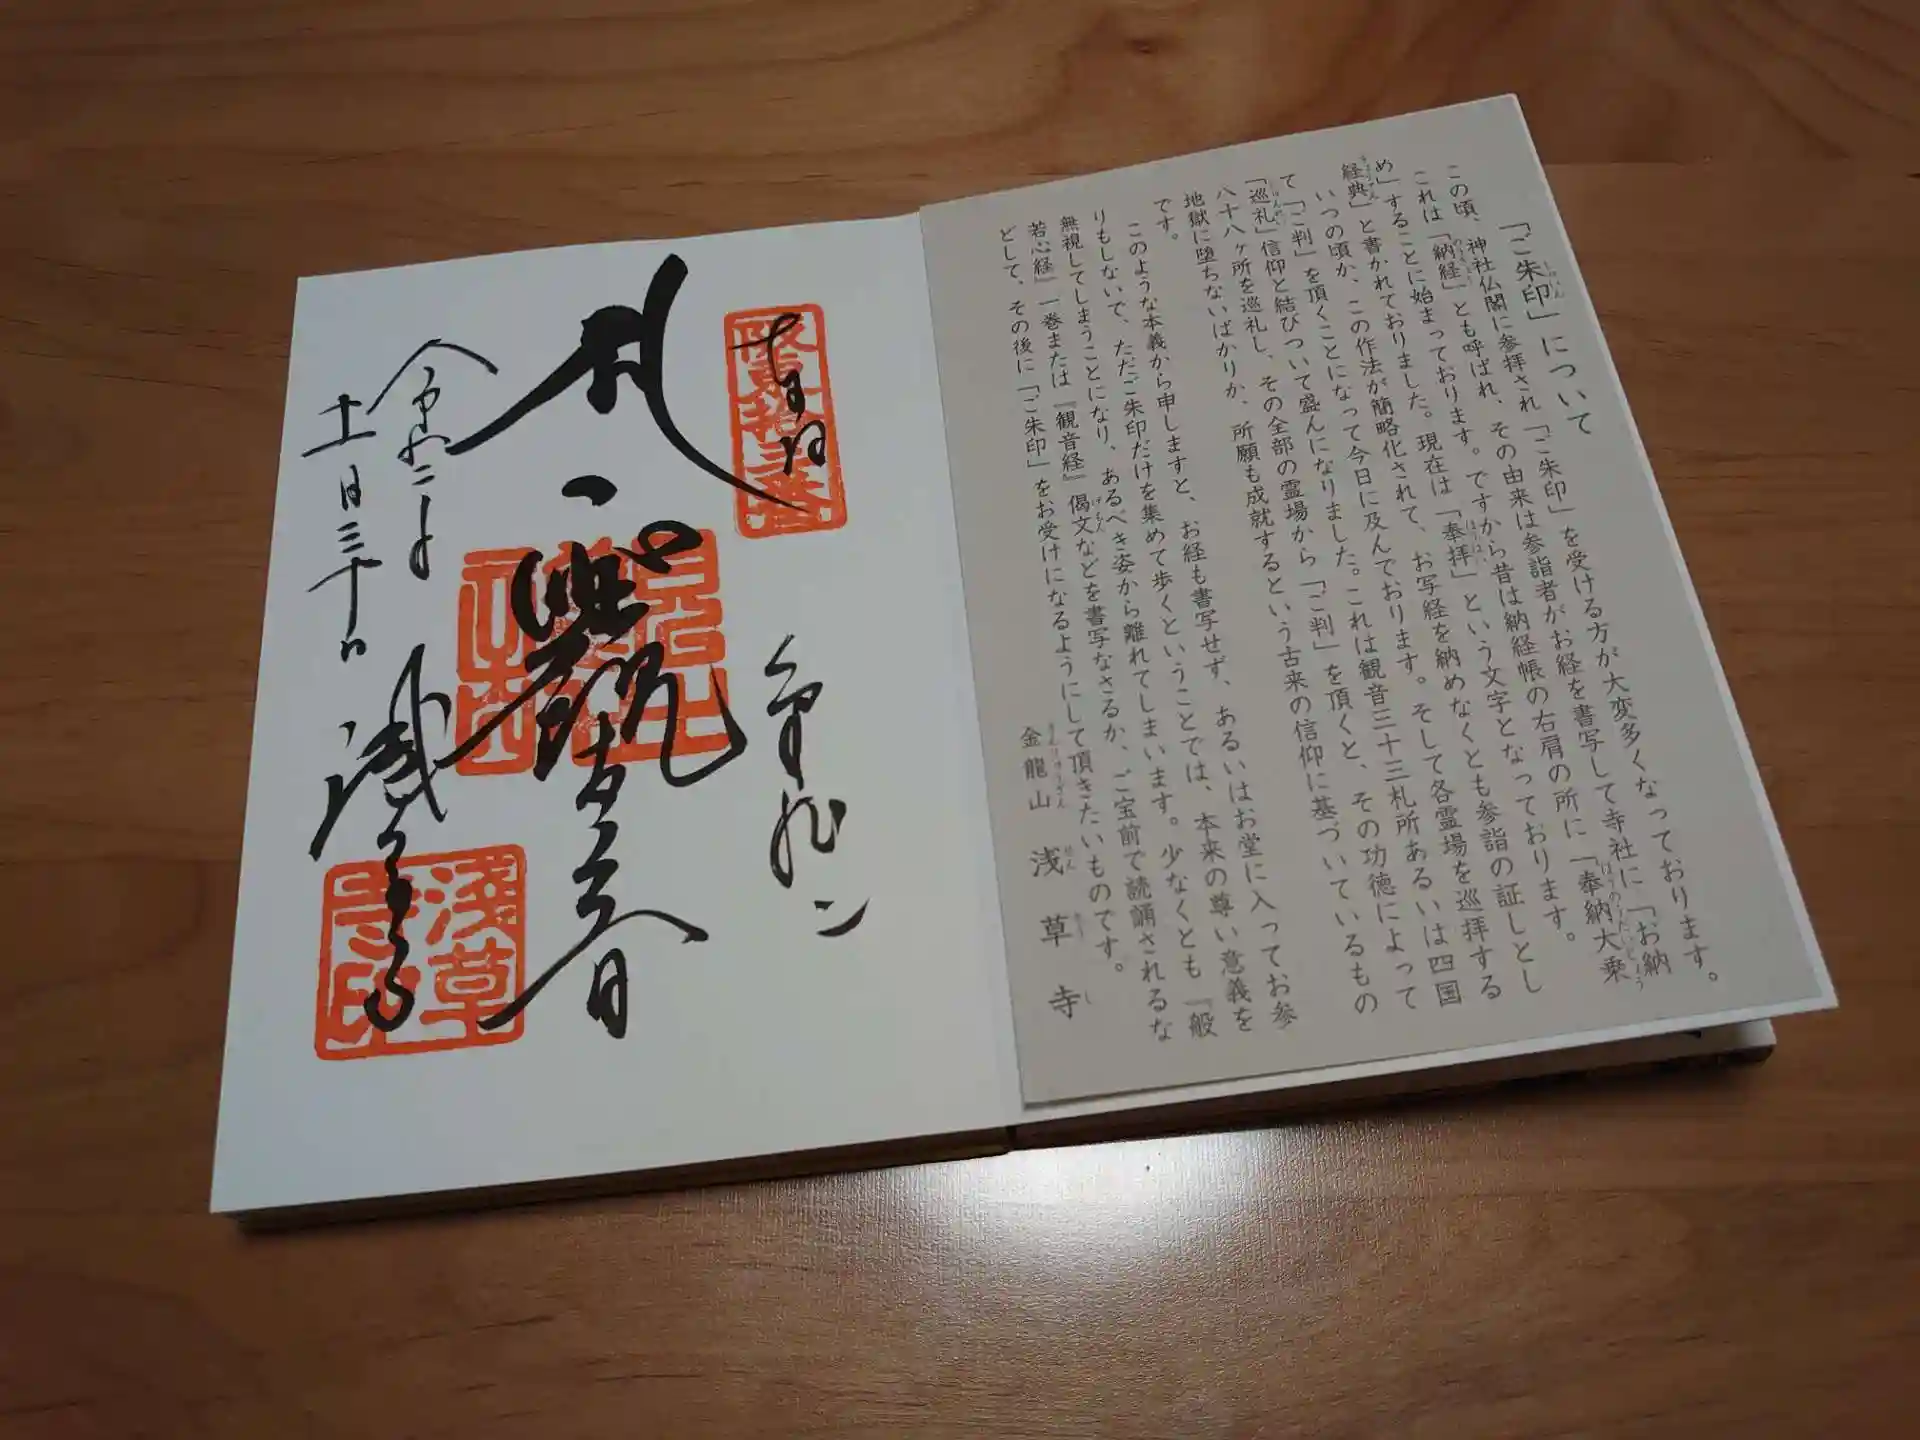 「ご朱印」について
この頃、神社仏閣に参拝され「ご朱印」を受ける方が大変多くなっております。
これは「納経」とも呼ばれ、その由来は参詣者がお経を書写して寺社に「お納
め」することに始まっております。ですから昔は納経帳の右肩の所に「奉納大乗
経典」と書かれておりました。現在は「奉拝」という文字となっております。
いつの頃か、この作法が簡略化されて、お写経を納めなくとも参詣の証しとし
て「ご判」を頂くことになって今日に及んでおります。そして各霊場を巡拝する
「巡礼」信仰と結びついて盛んになりました。これは観音三十三札所あるいは四国
八十八ヶ所を巡礼し、その全部の霊場から「ご判」を頂くと、その功徳によって
地獄に堕ちないばかりか、所願も成就するという古来の信仰に基づいているもの
です。
このような本義から申しますと、お経も書写せず、あるいはお堂に入ってお参
りもしないで、ただご朱印だけを集めて歩くということでは、本来の尊い意義を
無視してしまうことになり、あるべき姿から離れてしまいます。少なくとも『般
若心経』一巻または『観音経』偈文などを書写なさるか、ご宝前で読誦されるな
どして、その後に「ご朱印」をお受けになるようにして頂きたいものです。
金龍山 浅草寺
奉拝
坂東拾三番
金龍山
聖観世音
令和二年
十一月三十日
浅草寺
浅草寺印